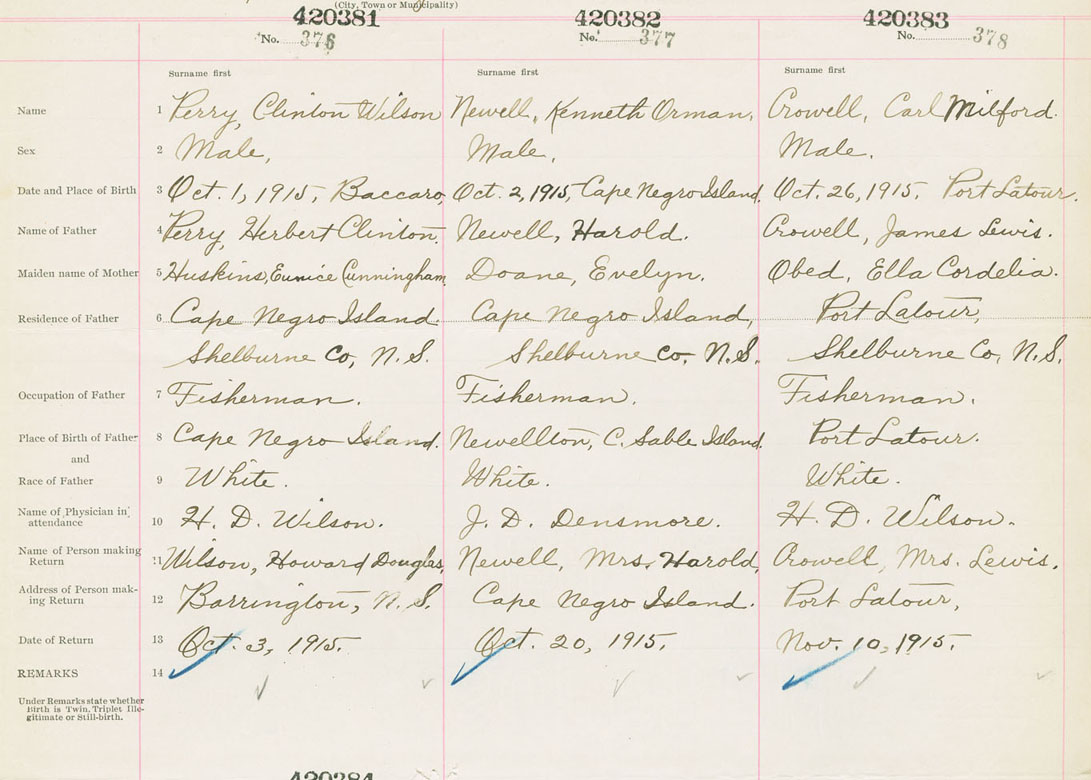 (City, Town or Municipality)
420381 420382 420383
No. 376 No. 377 No. 378
Surname first Surname first Surname first
Name 1 Perry, Clinton Wilson Newell, Kenneth Orman. Crowell, Carl Milford.
Sex 2 Male, Male, Male.
Date and Place of Birth 3 Oct. 1, 1915, Baccaro, Oct. 2, 1915, Cape Negro Island. Oct. 26, 1915. Port Latour.
Name of Father 4 Perry, Herbert Clinton. Newell, Harold. Crowell, James Lewis.
Maiden name of Mother 5 Huskins, Eunice Cunningham, Doane, Evelyn. Obed, Ella Cordelia.
Residence of Father 6 Cape Negro Island. Cape Negro Island, Port Latour,
Shelburne Co, N.S. Shelburne Co. N.S. Shelburne Co, N.S.
Occupation of Father 7 Fisherman. Fisherman. Fisherman.
Place of Birth of Father 8 Cape Negro Island. Newellton, C. Sable Island. Port Latour.
and
Race of Father 9 White. White. White.
Name of Physician in attendance 10 H. D. Wilson. J. D. Densmore. H. D. Wilson.
Name of Person making Return 11 Wilson, Howard Douglas, Newell, Mrs. Harold, Crowell, Mrs. Lewis.
Address of Person making Return 12 Barrington, N.S. Cape Negro Island. Port Latour,
Date of Return 13 Oct. 3, 1915. Oct. 20, 1915. Nov. 10, 1915.
REMARKS 14
Under Remarks state whether
Birth is Twin, Triplet Ille-
gitimate or Still-birth.
420384